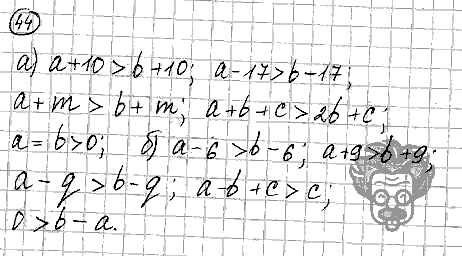 44
а) a+10>b+10; a-17>b-17;
a+m>b+m; a+b+c>2b+c;
a=b>0; б) a-6>b-6; a+9>b+9;
a-q>b-q; a-b+c>c;
0>b-a.